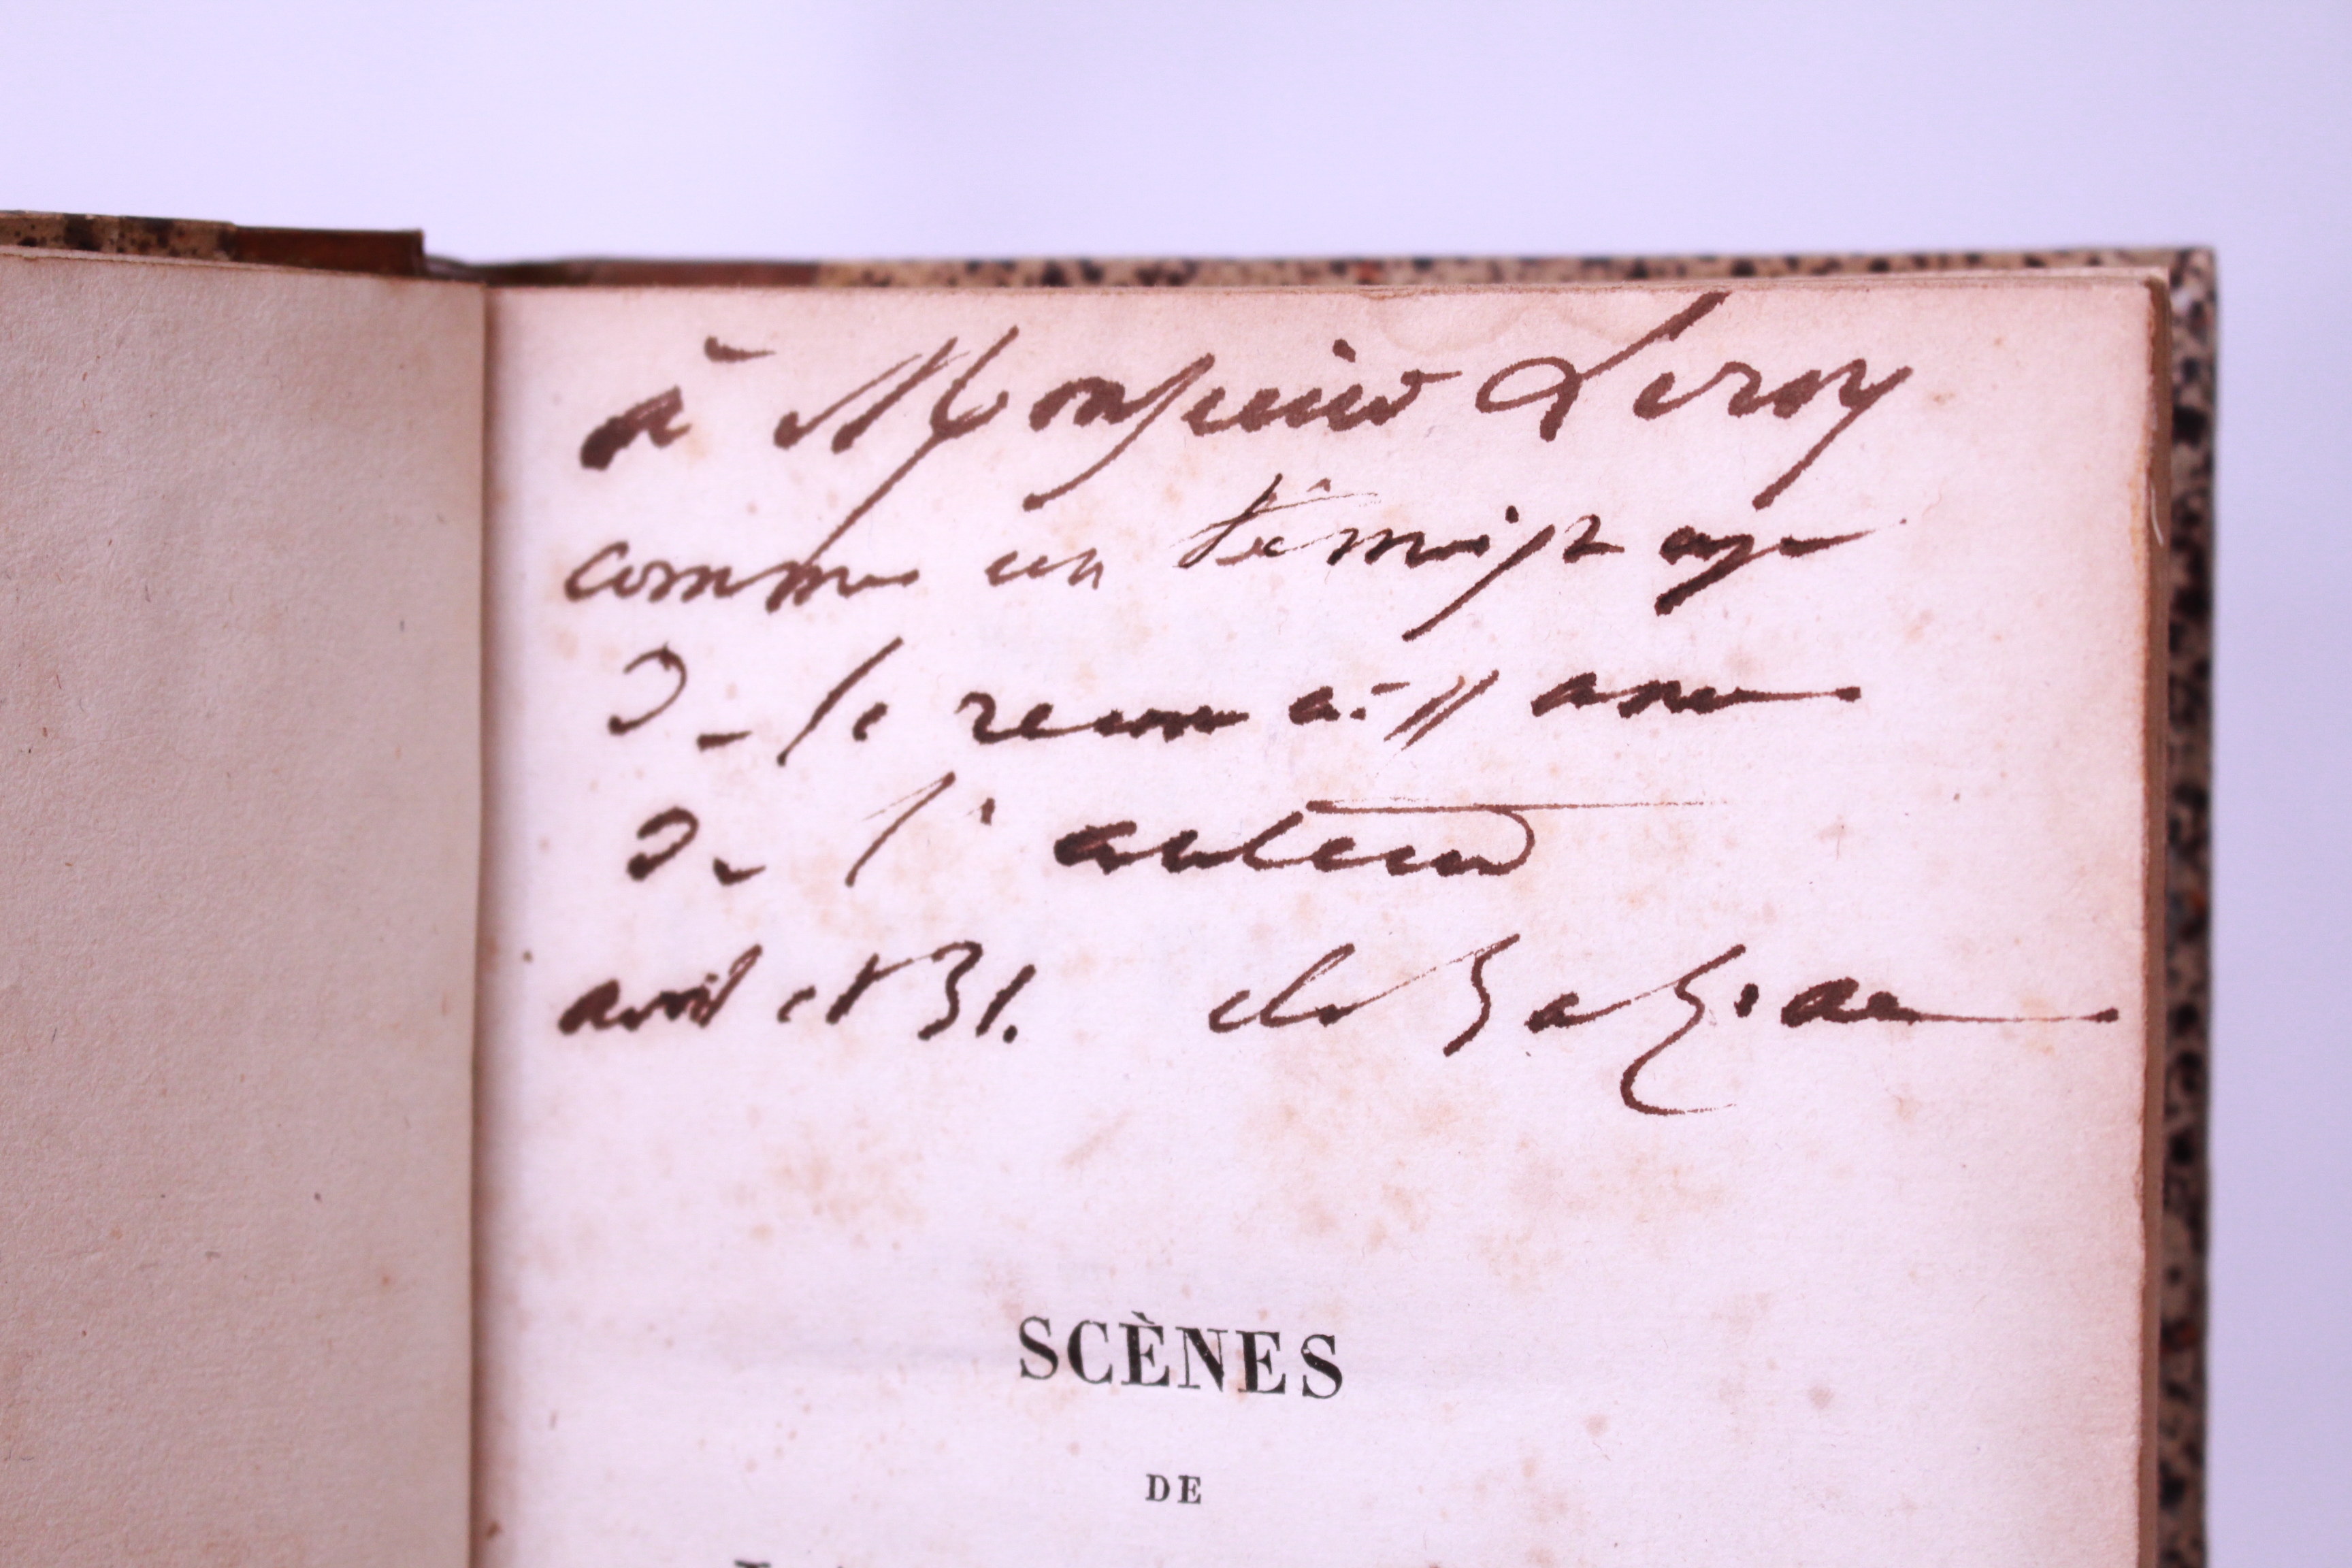 à Monsieur Leroy
comme un témoignage
de la reconnaissance
de l'auteur
avril 1831. de Balzac
SCÈNES
DE